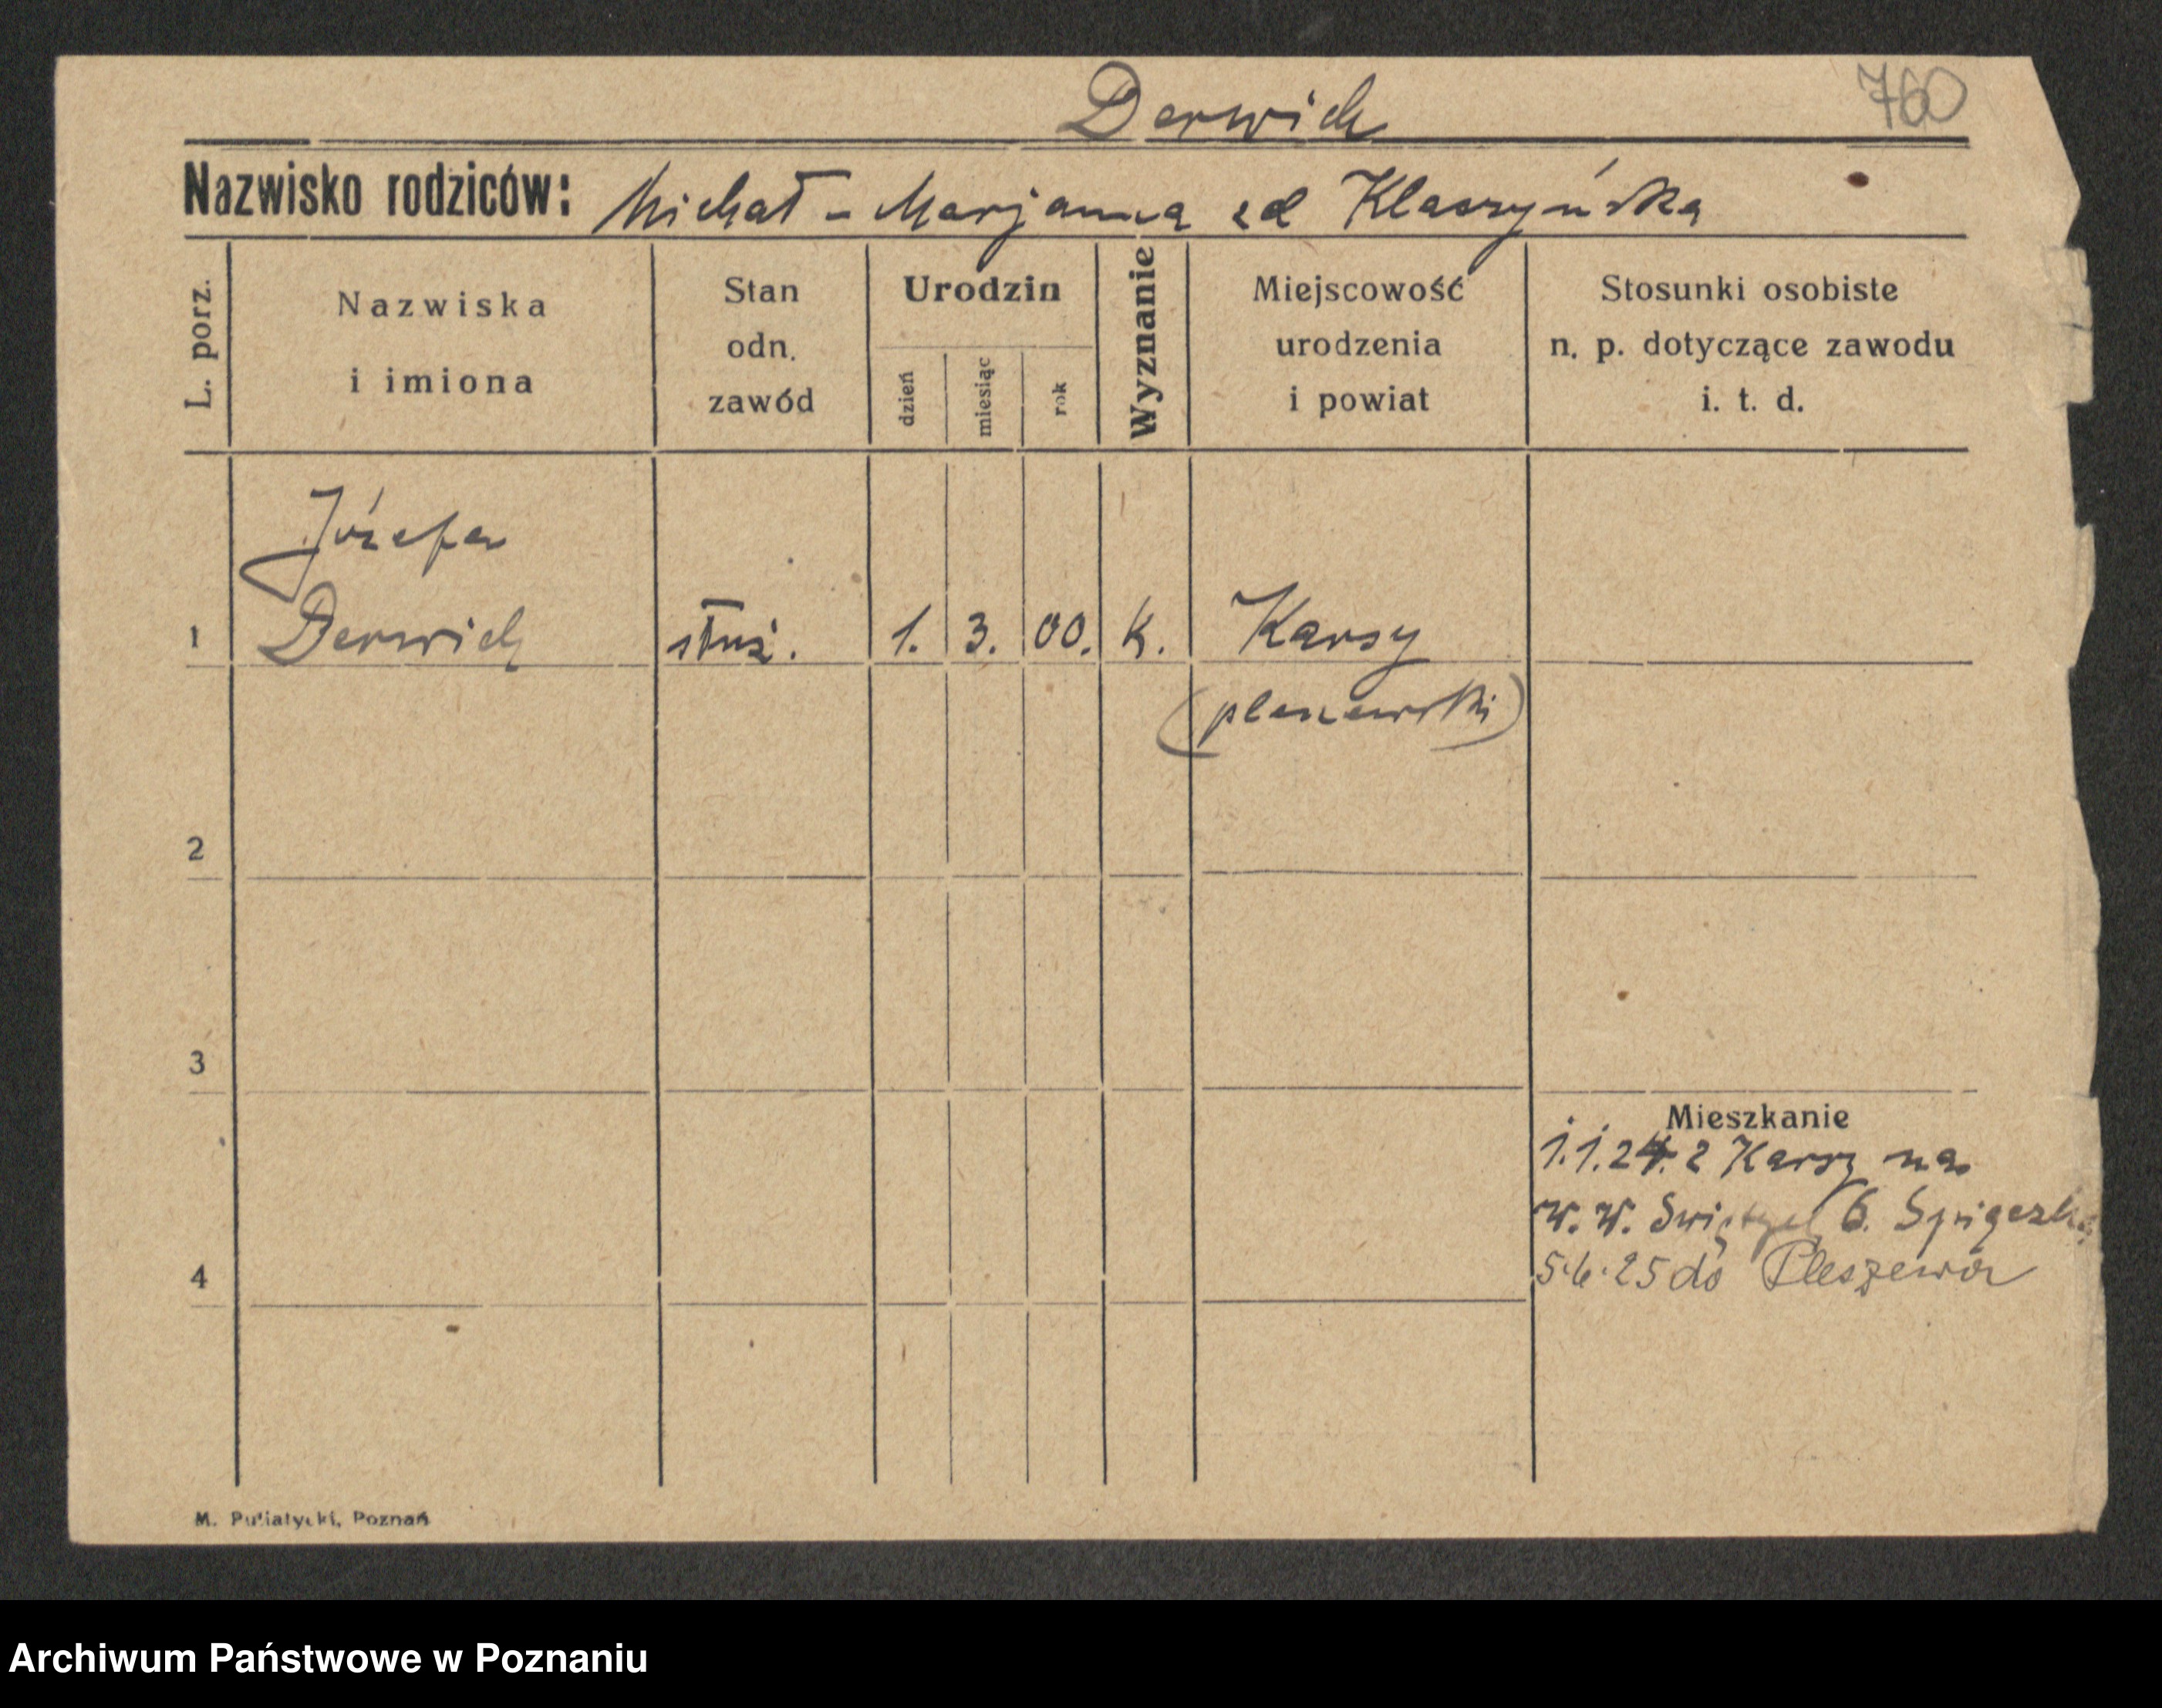 Derwich 760
Nazwisko rodziców: Michał - Marjanna zd Klaszyńska
L. porz.
Nazwiska
i imiona
Stan
odn.
zawód
Urodzin
dzień
miesiąc
rok
Wyznanie
Miejscowość
urodzenia
i powiat
Stosunki osobiste
n. p. dotyczące zawodu
i. t. d.
Józefa
1 Derwich służ. 1. 3. 00. k. Karsy
(pleszewski)
2
3
Mieszkanie
1.1.24. z Karsy na
W. W. Świętych 6.
4 5.6.25 do Pleszewa
M. Putiatycki, Poznań
Archiwum Państwowe w Poznaniu